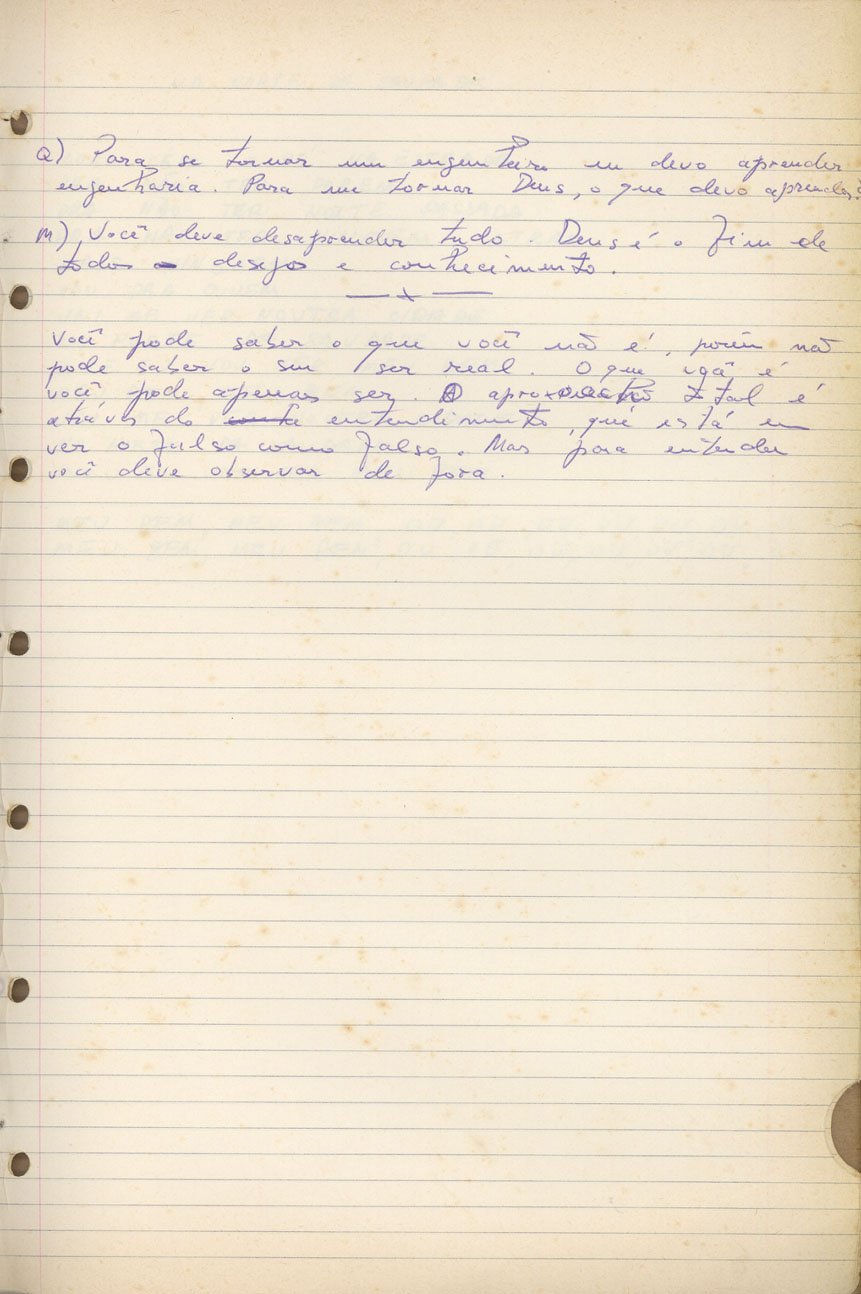 Q) Para se tornar um engenheiro eu devo aprender
engenharia. Para me tornar Deus, o que devo aprender?
M) Você deve desaprender tudo. Deus é o fim de
todos os desejos e conhecimento.
Você pode saber o que você não é, porém não
pode saber o seu ser real. O que você é
você pode apenas ser. A total é
através do entendimento, que está em
ver o falso como falso. Mas para entender
você deve observar de fora.